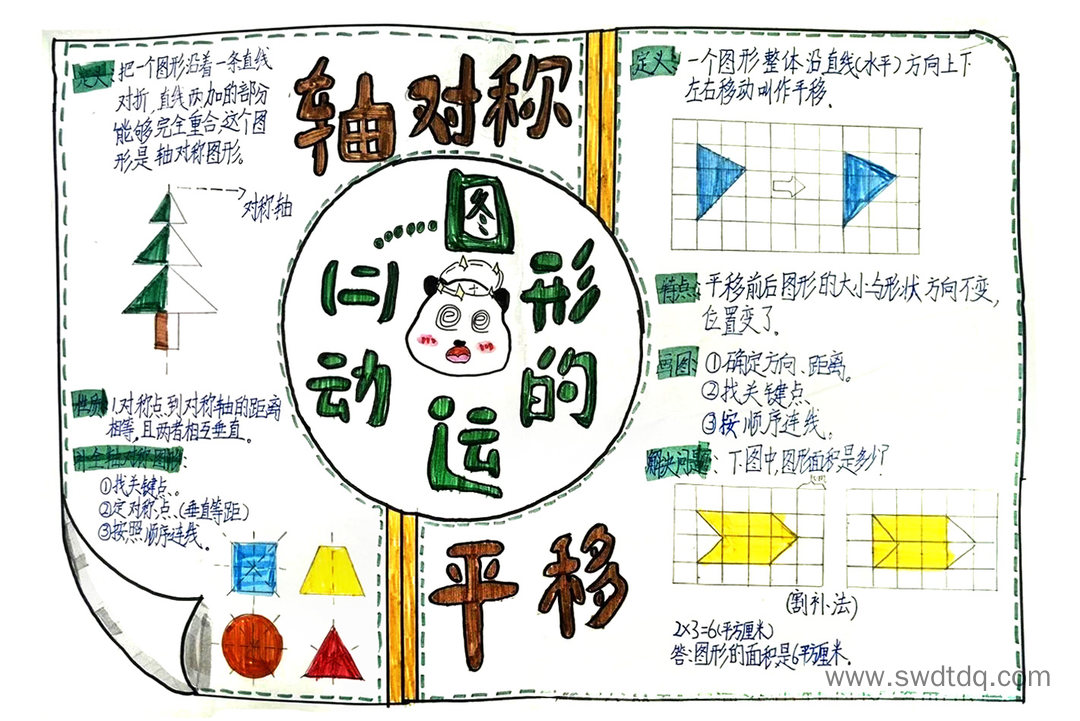 轴对称
图形的运动(二)
平移
定义: 把一个图形沿着一条直线
对折,直线两加的部分
能够完全重合,这个图
形是轴对称图形。
对称轴
性质: 1.对称点到对称轴的距离
相等,且两者相互垂直。
补全轴对称图形:
①找关键点。
②定对称点.(垂直等距)
③按照顺序连线。
定义: 一个图形整体沿直线(水平)方向上下
左右移动叫作平移。
特点: 平移前后图形的大小与形状方向不变,
位置变了。
画图: ①确定方向、距离。
②找关键点
③按顺序连线。
解决问题: 下图中,图形面积是多少?
(割补法)
2×3=6(平方厘米)
答:图形的面积是6平方厘米。
www.swdtdq.com